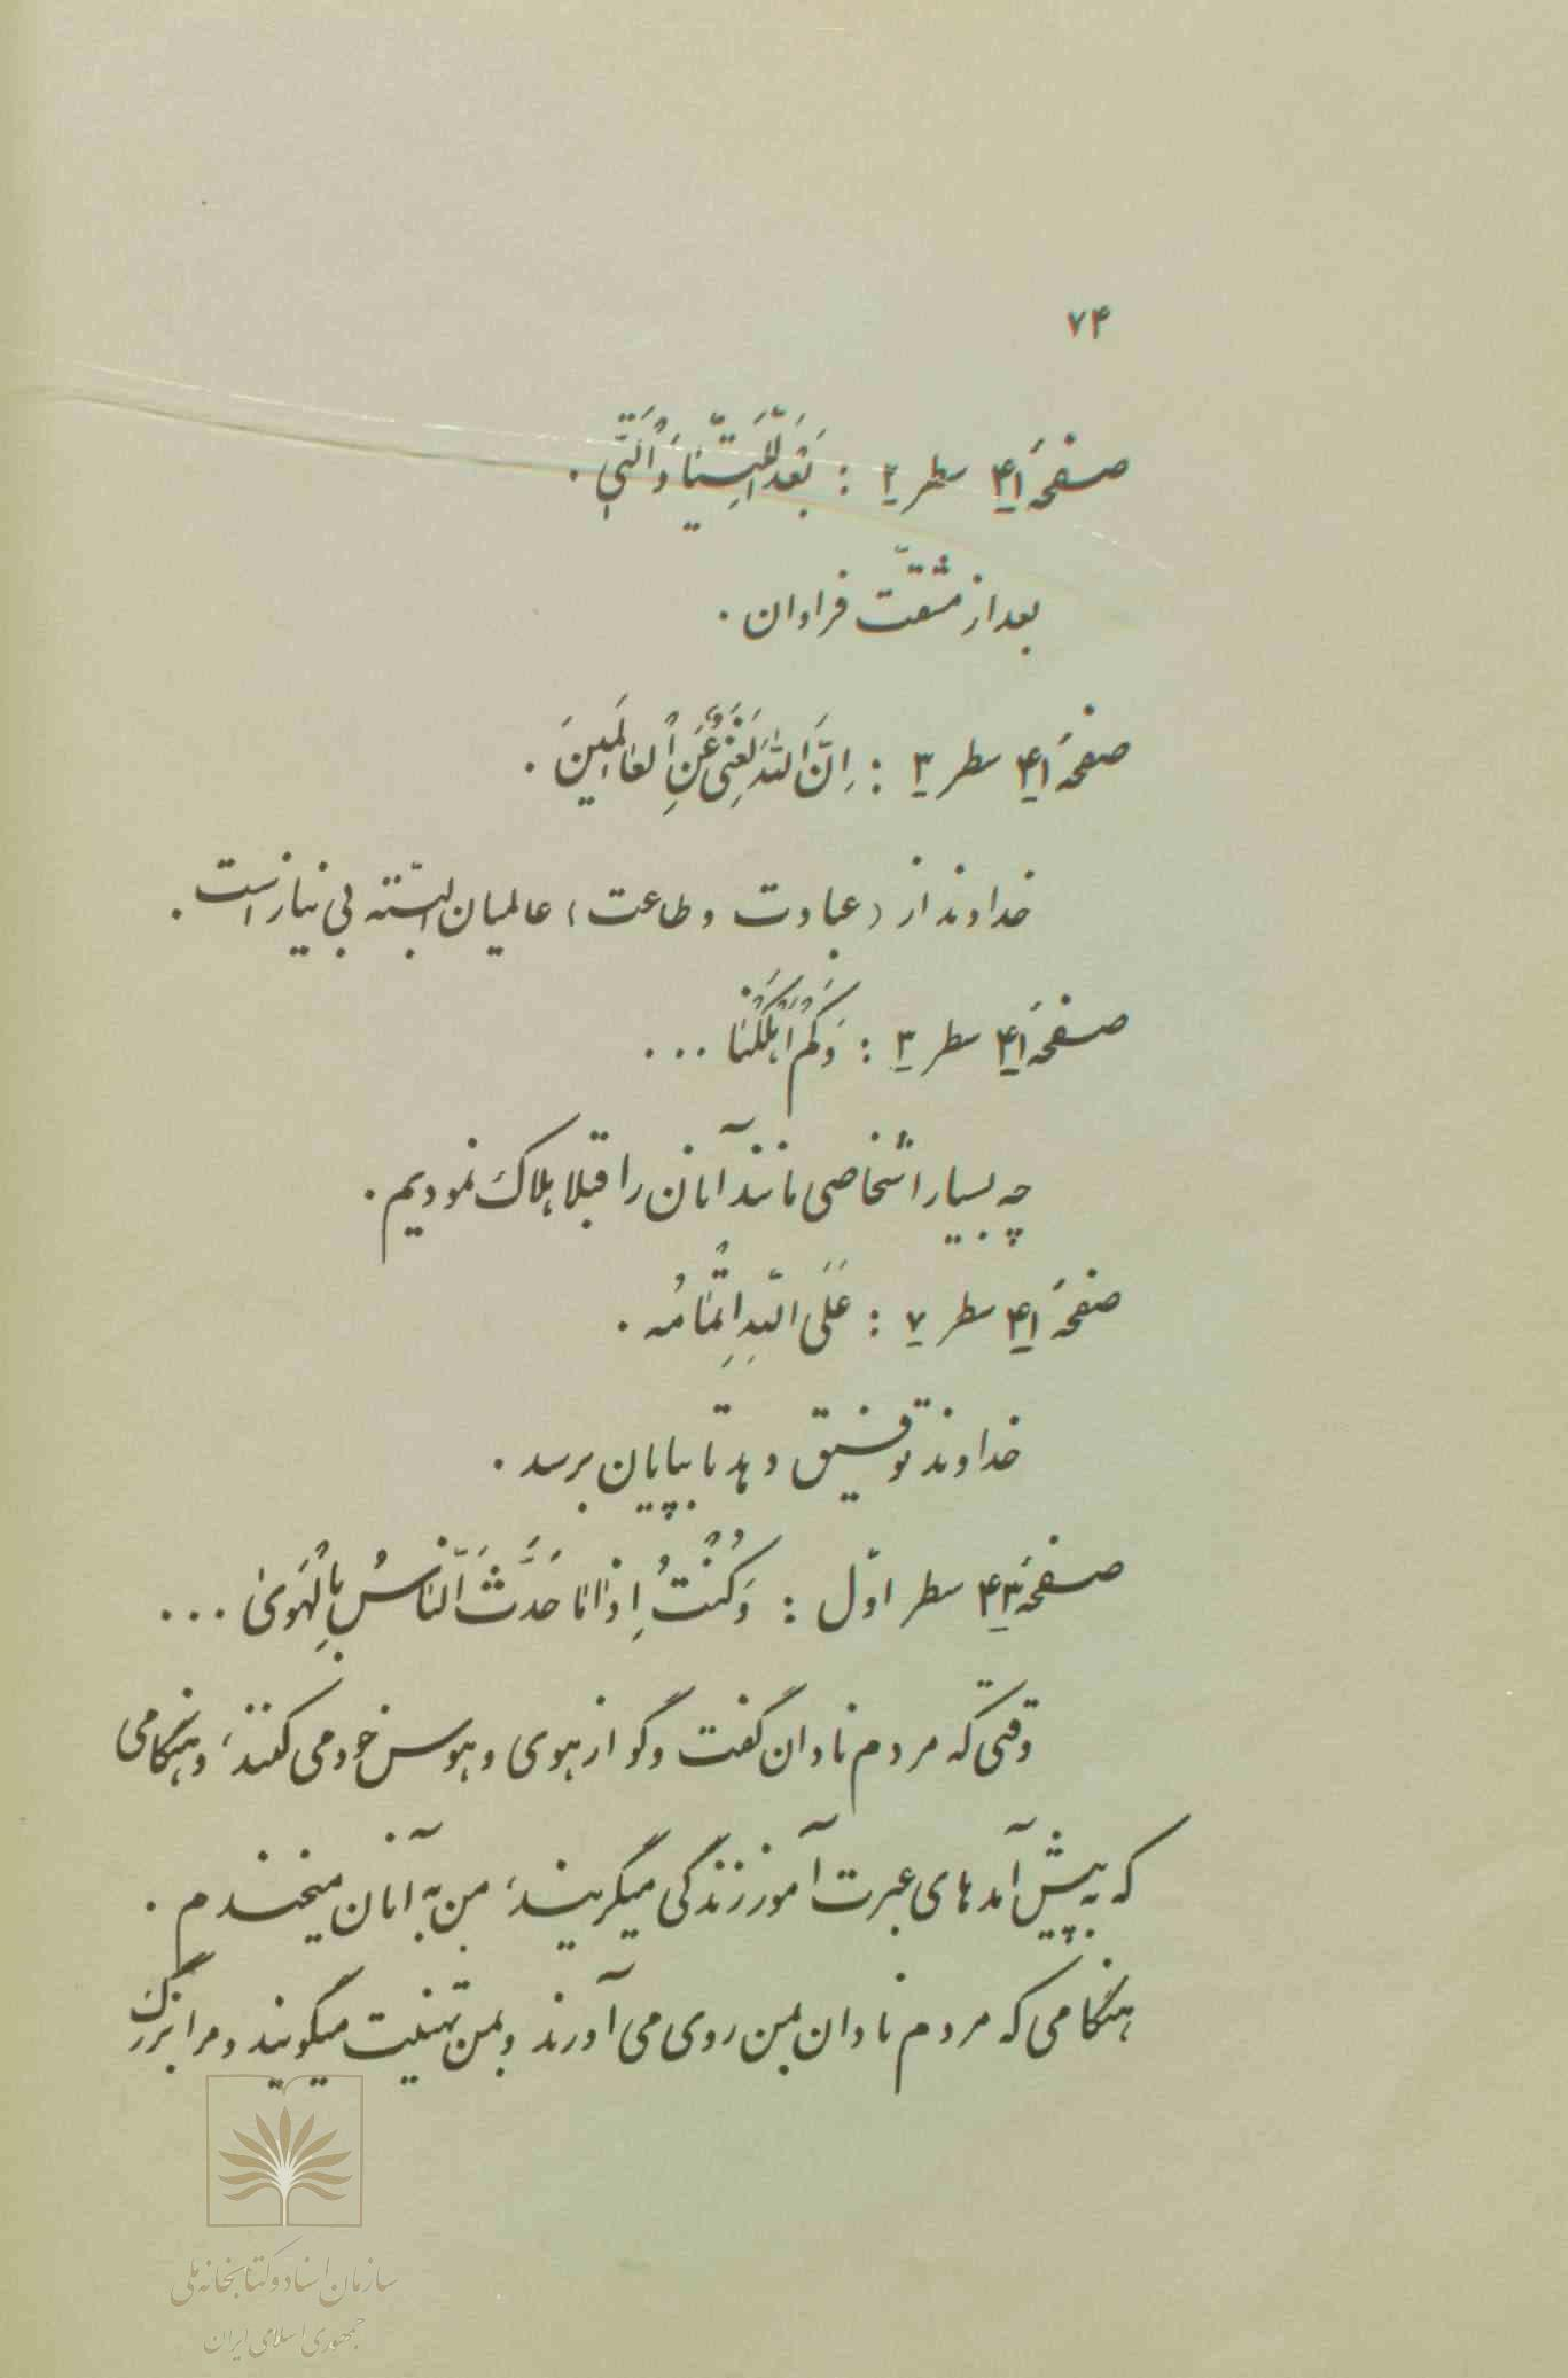 ۷۴
صفحهٔ ۴۱ سطر ۲ : بَعْدَ اللَّتَیّا وَ الَّتی .
بعد از مشقّت فراوان .
صفحهٔ ۴۱ سطر ۳ : اِنَّ اللّهَ لَغَنِیٌّ عَنِ الْعالَمینَ .
خداوند از (عبادت و طاعت) عالمیان البتّه بی نیاز است .
صفحهٔ ۴۱ سطر ۳ : وَکَمْ اَهْلَکْنا ...
چه بسیار اشخاصی مانند آنان را قبلا هلاک نمودیم .
صفحهٔ ۴۱ سطر ۷ : عَلَی اللّهِ اِتْمامُه .
خداوند توفیق دهد تا بپایان برسد .
صفحهٔ ۴۳ سطر اوّل : وَکُنْتُ اِذْا ما حَدَّثَ النّاسُ بِالْهَویٰ ...
وقتی که مردم نادان گفت و گو از هوی و هوس خود می کنند، و هنگامی
که به پیش آمدهای عبرت آموز زندگی میگریند، من به آنان میخندم .
هنگامی که مردم نادان بمن روی می آورند و بمن تهنیت میگویند و مرا بزرگ
سازمان اسناد و کتابخانه ملی
جمهوری اسلامی ایران